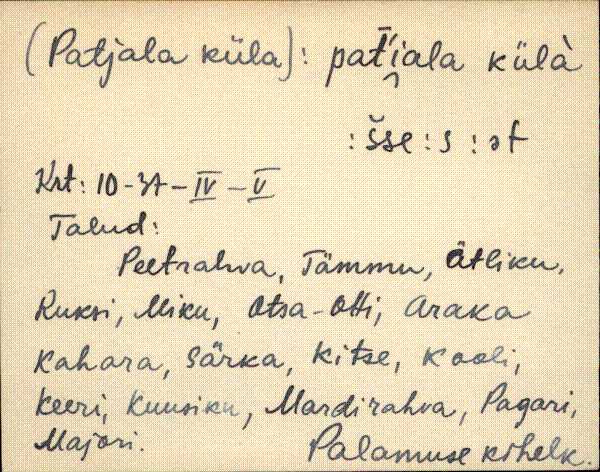 (Patjala küla): pat'iala külà
: šse : s : st
Krt: 10-37-IV-V
Talud:
Peetrahva, Tämmu, Ätliku,
Ruksi, Miku, Otsa-Otti, Araka
Kahara, Särka, Kitse, Kooli,
Keeri, Kuusiku, Mardirahva, Pagari,
Majori. Palamuse kihelk.